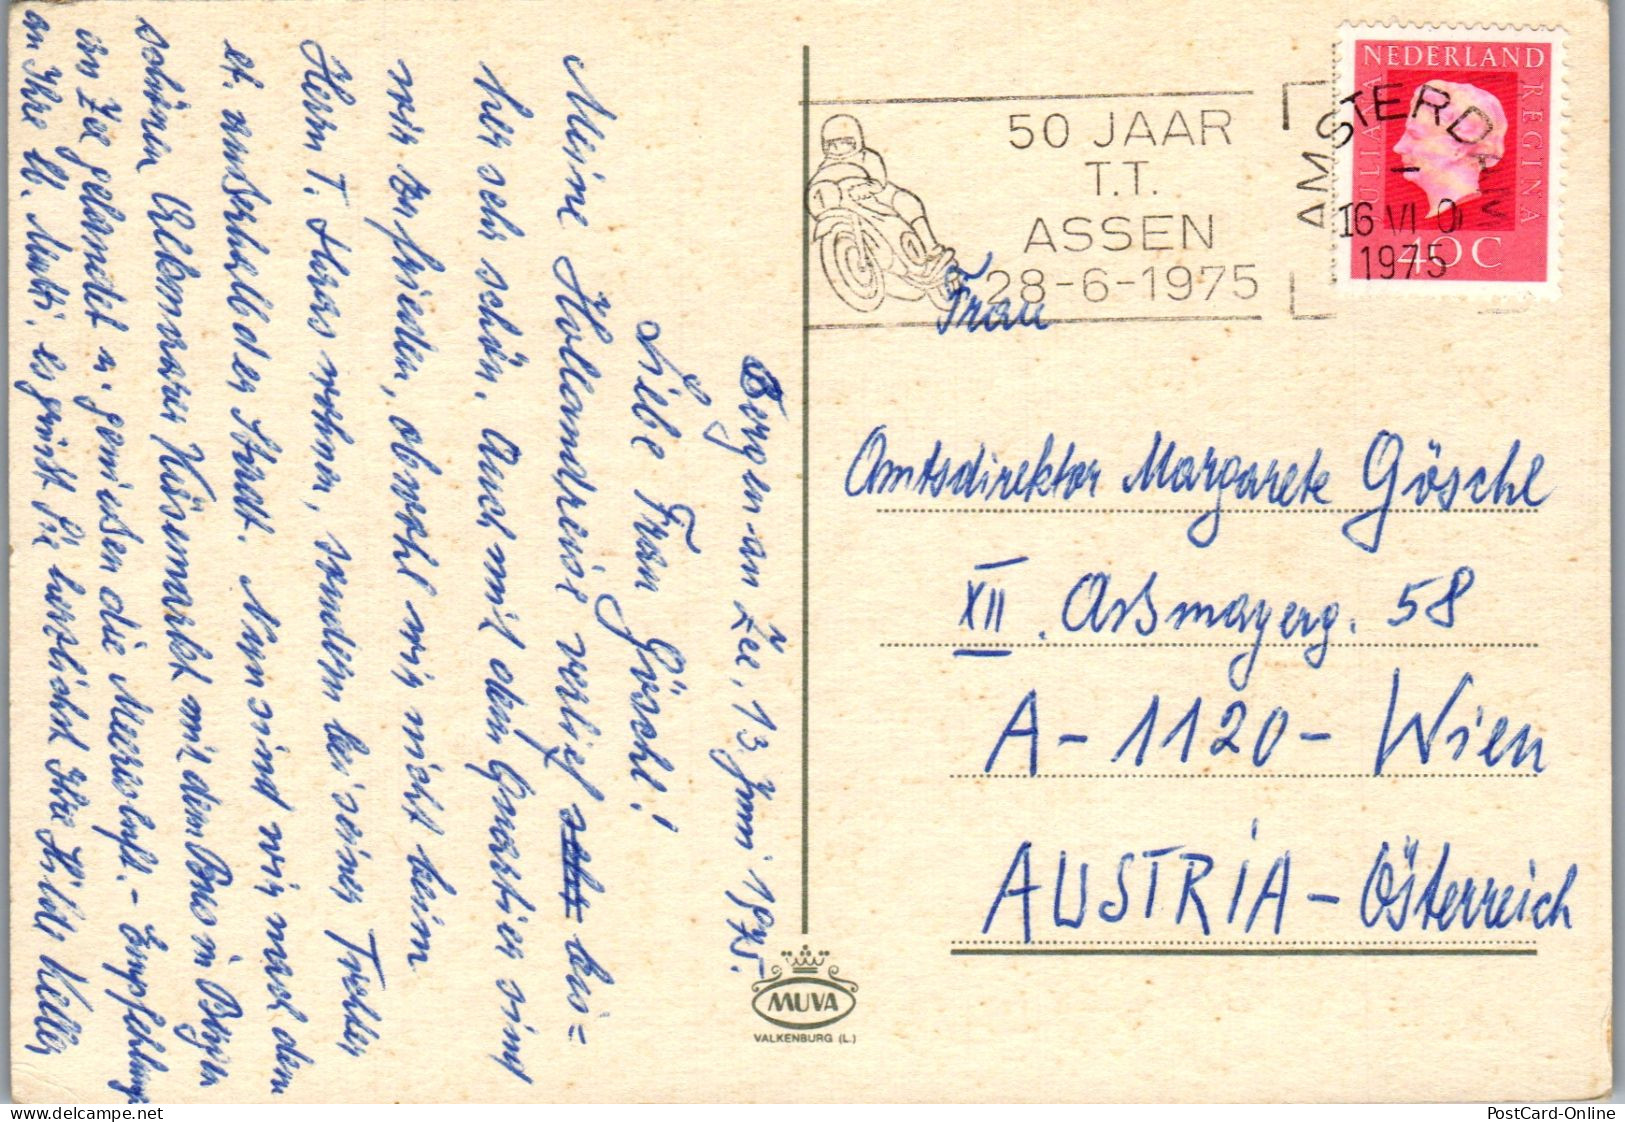 Bergen-an Zee, 13 Juni 1975.
Liebe Frau Göschl!
Meine Hollandreise verlief bis=
her sehr schön. Auch mit dem Quartier sind
wir zufrieden, obwohl wir nicht beim
Herrn T. Haas wohnen, sondern bei seiner Tochter
et. außerhalb der Stadt. Nun sind wir nach dem
schönen Alkmaarer Käsemarkt mit dem Bus in Bergen
an Zee gelandet u. genießen die Meeresluft. - Empfehlung
an Ihre lb. Mutti. es grüßt Sie herzlichst Ihre Hilde Keller
50 JAAR
T.T.
ASSEN
28-6-1975
AMSTERDAM
16 VI 0
1975
NEDERLAND
JULIANA REGINA
40C
Frau
Amtsdirektor Margarete Göschl
XII. Aßmayerg. 58
A-1120-Wien
AUSTRIA-Österreich
MUVA
VALKENBURG (L.)
www.delcampe.net
PostCard-Online